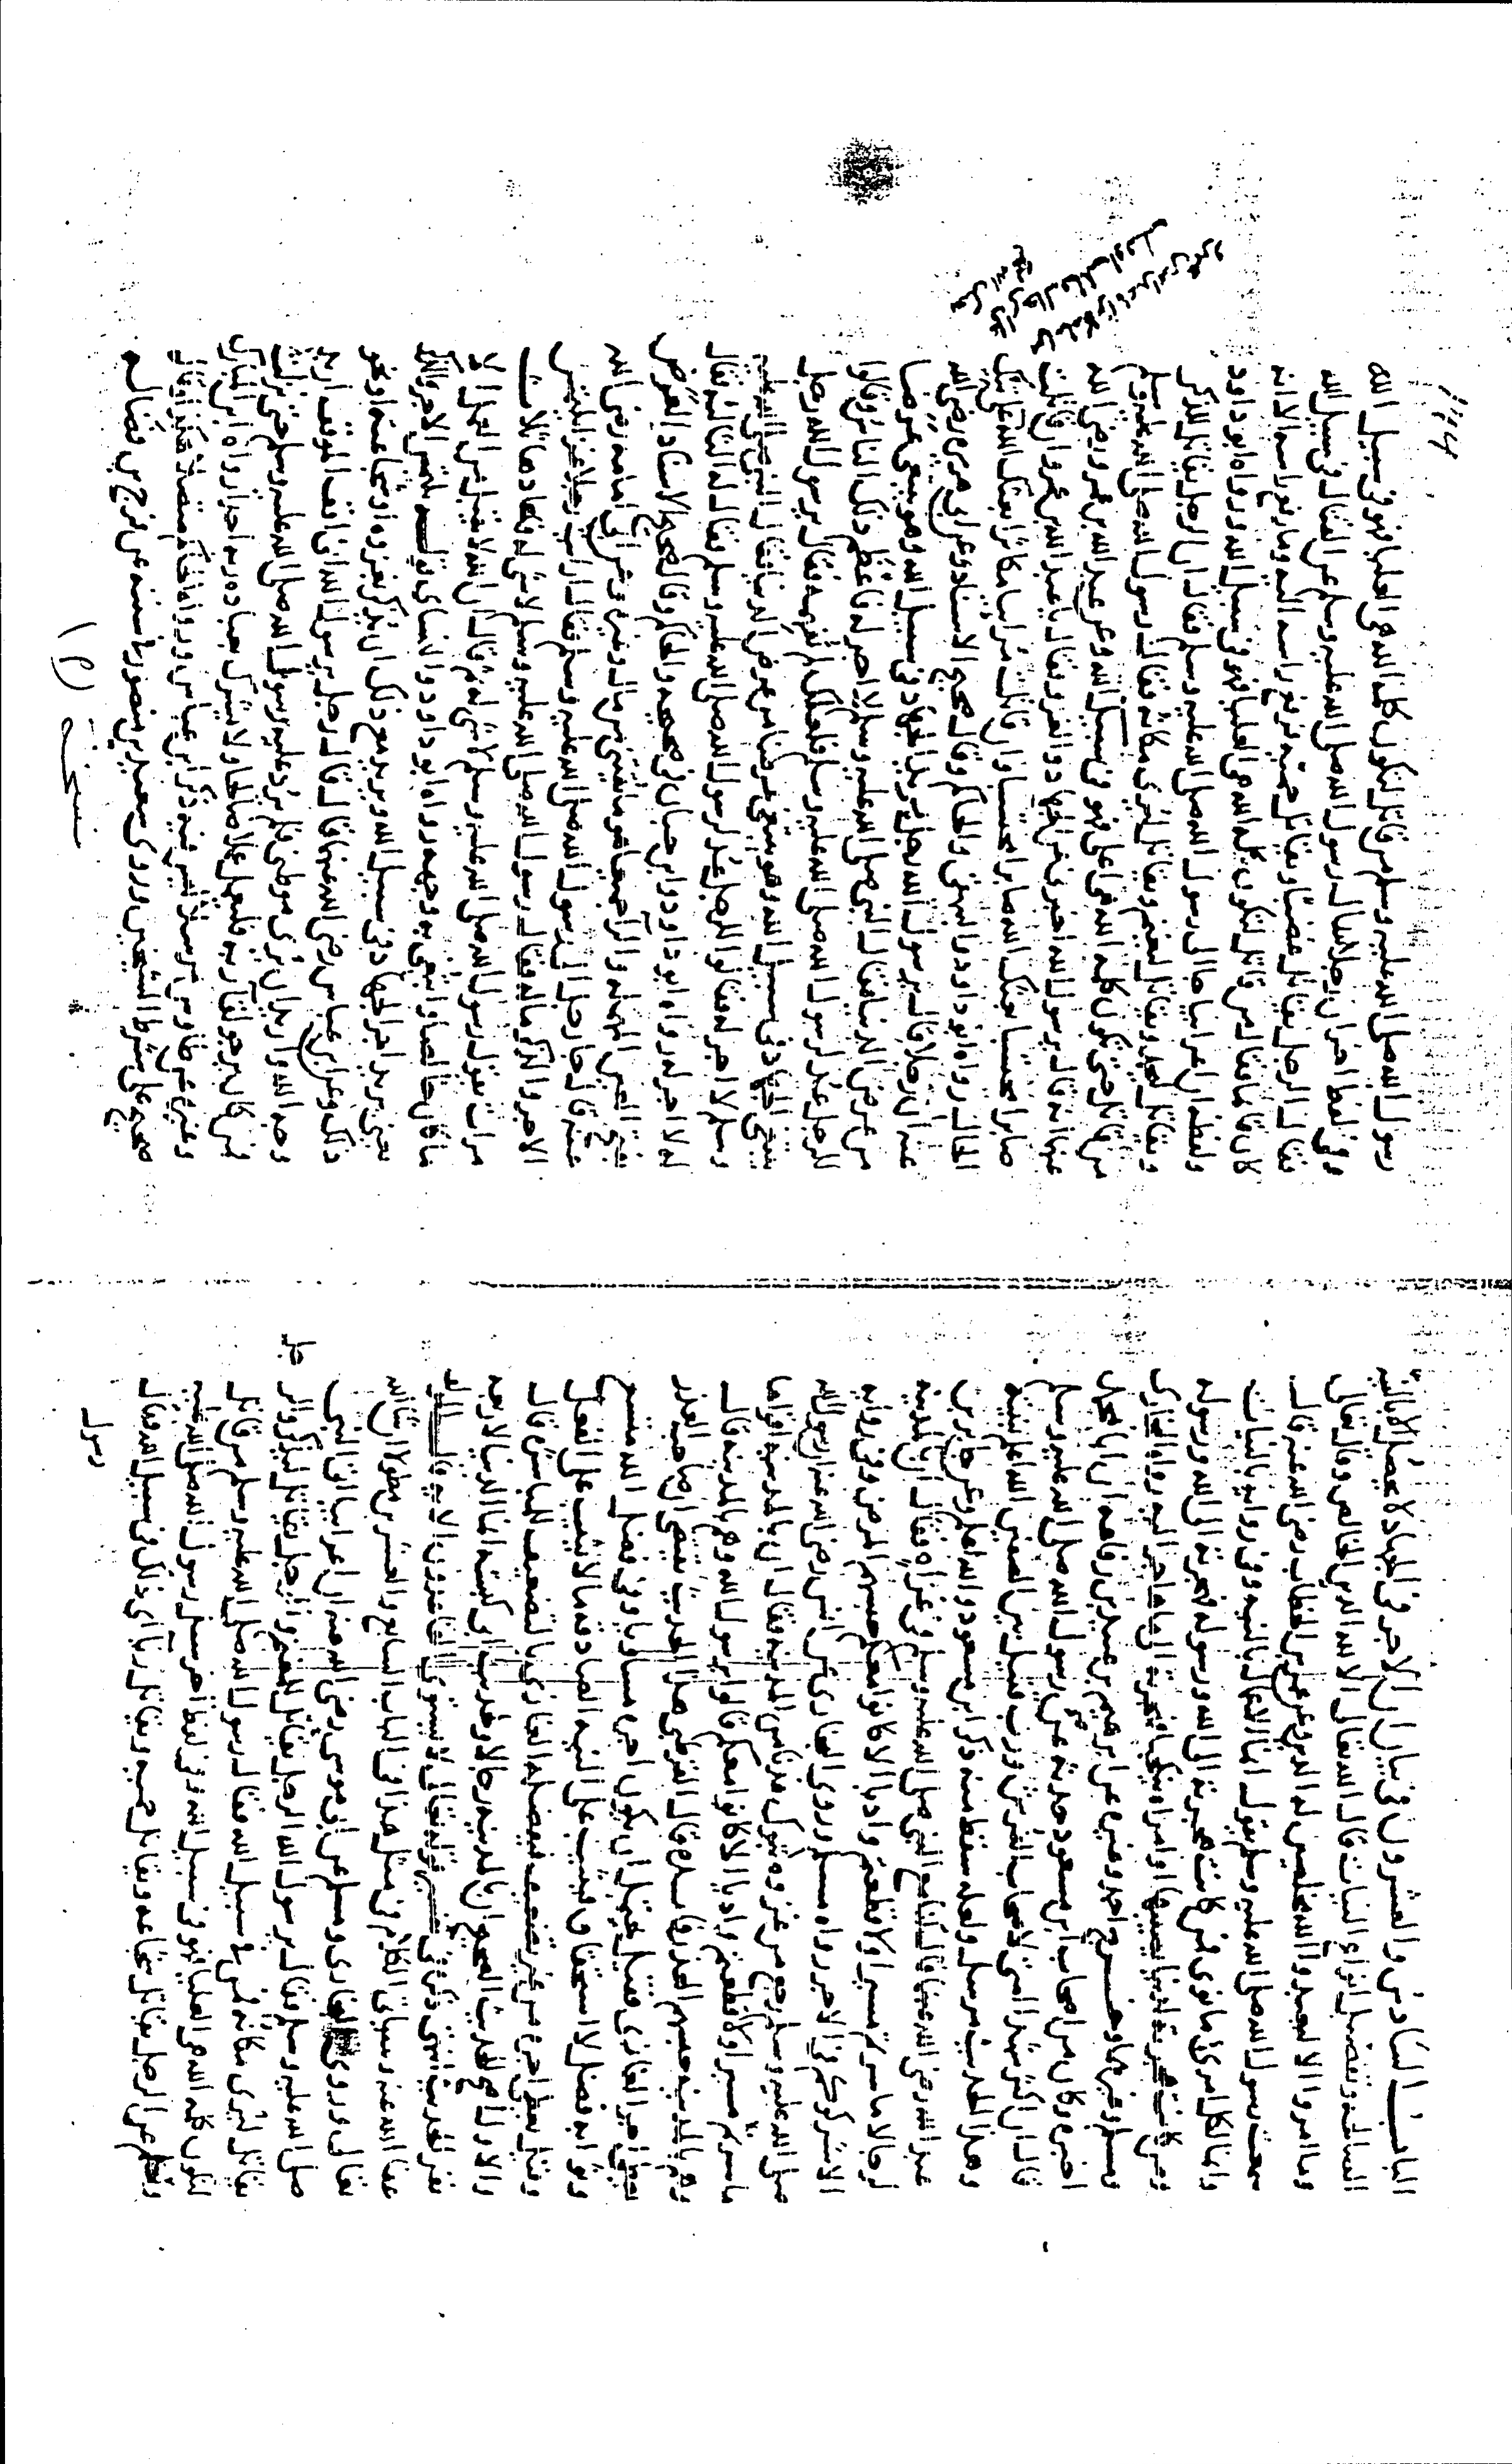 الباب السادس والعشرون في بيان ان الاجر في الجهاد لا يحصل الا بالنية
الصالحة وتفصيل انواع النيات قال الله تعالى الا لله الدين الخالص وقال تعالى
وما امروا الا ليعبدوا الله مخلصين له الدين وعن عمر بن الخطاب رضي الله عنه قال
سمعت رسول الله صلى الله عليه وسلم يقول انما الاعمال بالنية وفي رواية بالنيات
وانما لكل امرئ ما نوى فمن كانت هجرته الى الله ورسوله فهجرته الى الله ورسوله
ومن كانت هجرته لدنيا يصيبها او امراة ينكحها فهجرته الى ما هاجر اليه رواه البخاري
ومسلم وغيرهما وخرج احمد وغيره عن ابرهيم بن عبيد بن رفاعة ان ابا محمد
اخبره وكان من اصحاب ابن مسعود حدثه عن رسول الله صلى الله عليه وسلم
قال ان اكثر شهدا امتي لاصحاب الفرش ورب قتيل بين الصفين الله اعلم بنيته
وهذا الحديث مرسل ولعله سقط منه ذكر ابن مسعود والله اعلم وعن جابر بن
عبد الله رضي الله عنهما قال كنا مع النبي صلى الله عليه وسلم في غزاة فقال ان بالمدينة
لرجالا ما سرتم مسيرا ولا قطعتم واديا الا كانوا معكم حبسهم المرض وفي رواية
الا شركوكم في الاجر رواه مسلم وروى البخاري عن انس رضي الله عنه ان رسول الله
صلى الله عليه وسلم رجع من غزوة تبوك فدنا من المدينة فقال ان بالمدينة اقواما
ما سرتم مسيرا ولا قطعتم واديا الا كانوا معكم قالوا يرسول الله وهم بالمدينة قال
وهم بالمدينة حبسهم العذر قال القرطبي هذا الحديث يقتضي ان صاحب العذر
يعطى اجر الغازي فقيل يحتمل ان يكون اجره مساويا وفي فضل الله متسع
وثوابه فضل لا استحقاق فيثيب على النية الصادقة ما لا يثيب على الفعل
وقيل يعطى اجره من غير تضعيف فيفضله الغازي بالتضعيف للمباشرة قال
والاول اصح للحديث الصحيح ان بالمدينة رجالا ولحديث ابي كبشة انما الدنيا لاربعة
نفر الحديث انتهى ذكره في تفسير قوله تعالى لا يستوي القاعدون الاية قال المولف
عفا الله عنه وسياتي الكلام في مثل هذا في الباب السابع والعشرين مطولا ان شا الله
تعالى وروى البخاري ومسلم عن ابي موسى رضي الله عنه ان اعرابيا اتى النبي
صلى الله عليه وسلم فقال يرسول الله الرجل يقاتل للمغنم والرجل يقاتل ليذكر والرجل
يقاتل ليرى مكانه فمن في سبيل الله فقال رسول الله صلى الله عليه وسلم من قاتل
لتكون كلمة الله هي العليا فهو في سبيل الله وفي لفظ اخر سئل رسول الله صلى الله عليه
وسلم عن الرجل يقاتل شجاعة ويقاتل حمية ويقاتل رياء اي ذلك في سبيل الله فقال
رسول
رسول الله صلى الله عليه وسلم من قاتل لتكون كلمة الله هي العليا فهو في سبيل الله
وفي لفظ اخر ان رجلا سال رسول الله صلى الله عليه وسلم عن القتال في سبيل الله
فقال الرجل يقاتل غضبا ويقاتل حمية فرفع راسه اليه وما رفع راسه الا انه
كان قائما فقال من قاتل لتكون كلمة الله هي العليا فهو في سبيل الله ورواه ابو داود
ولفظه ان اعرابيا جا الى رسول الله صلى الله عليه وسلم فقال ان الرجل يقاتل للذكر
ويقاتل ليحمد ويقاتل ليغنم ويقاتل ليرى مكانه فقال رسول الله صلى الله عليه وسلم
من قاتل حتى تكون كلمة الله هي اعلى فهو في سبيل الله وعن عبد الله بن عمرو رضي الله
عنهما انه قال يرسول الله اخبرني عن الجهاد والغزو فقال يا عبد الله بن عمرو ان قاتلت
صابرا محتسبا بعثك الله صابرا محتسبا وان قاتلت مرائيا مكاثرا بعثك الله على تلك
الحال رواه ابو داود والبيهقي والحاكم وقال صحيح الاسناد وعن ابي هريرة رضي الله
عنه ان رجلا قال يرسول الله رجل يريد الجهاد في سبيل الله وهو يبتغي عرضا
من عرض الدنيا فقال النبي صلى الله عليه وسلم لا اجر له فاعظم ذلك الناس وقالوا
للرجل عد لرسول الله صلى الله عليه وسلم فلعلك لم تفهمه فقال يرسول الله رجل
يريد الجهاد في سبيل الله وهو يبتغي عرضا من عرض الدنيا فقال النبي صلى الله عليه
وسلم لا اجر له فقالوا للرجل عد لرسول الله صلى الله عليه وسلم فقال له الثالثة فقال
له لا اجر له رواه ابو داود وابن حبان في صحيحه والحاكم وقال صحيح الاسناد العرض
بفتح العين المهملة والرا جميعا هو ما يقتنى من مال وغيره وعن ابي امامة رضي الله
عنه قال جا رجل الى رسول الله صلى الله عليه وسلم فقال ارايت رجلا غزا يلتمس
الاجر والذكر ما له فقال رسول الله صلى الله عليه وسلم لا شي له فاعادها ثلاث
مرات يقول رسول الله صلى الله عليه وسلم لا شي له ثم قال ان الله لا يقبل من العمل الا
ما كان خالصا وابتغي به وجهه رواه ابو داود والنساي
يعني يريد اجر الجهاد في سبيل الله ويريد مع ذلك ان يذكر بغزوه او شجاعته او نحو
ذلك وعن ابن عباس رضي الله عنهما قال قال رجل يرسول الله اني اقف الموقف اريد
وجه الله واريد ان يرى موطني فلم يرد عليه رسول الله صلى الله عليه وسلم حتى نزلت
فمن كان يرجو لقا ربه فليعمل عملا صالحا ولا يشرك بعبادة ربه احدا رواه ابن المبارك
وغيره عن طاوس مرسلا ليس فيه ذكر ابن عباس ورواه الحاكم متصلا هكذا وقال
صحيح على شرط الشيخين وروى سعيد بن منصور في سننه عن فرج بن فضالة